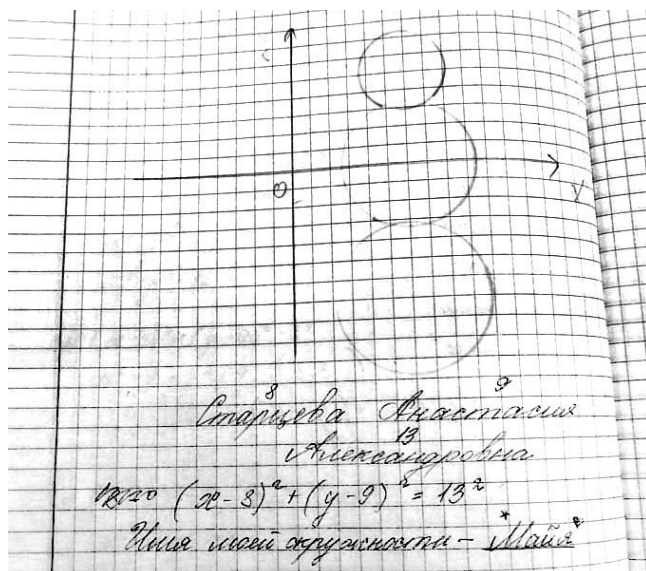 O
Y
8 9
Старцева Анастасия
13
Александровна
(x-8)²+(y-9)²=13²
Имя моей окружности - "Майя"